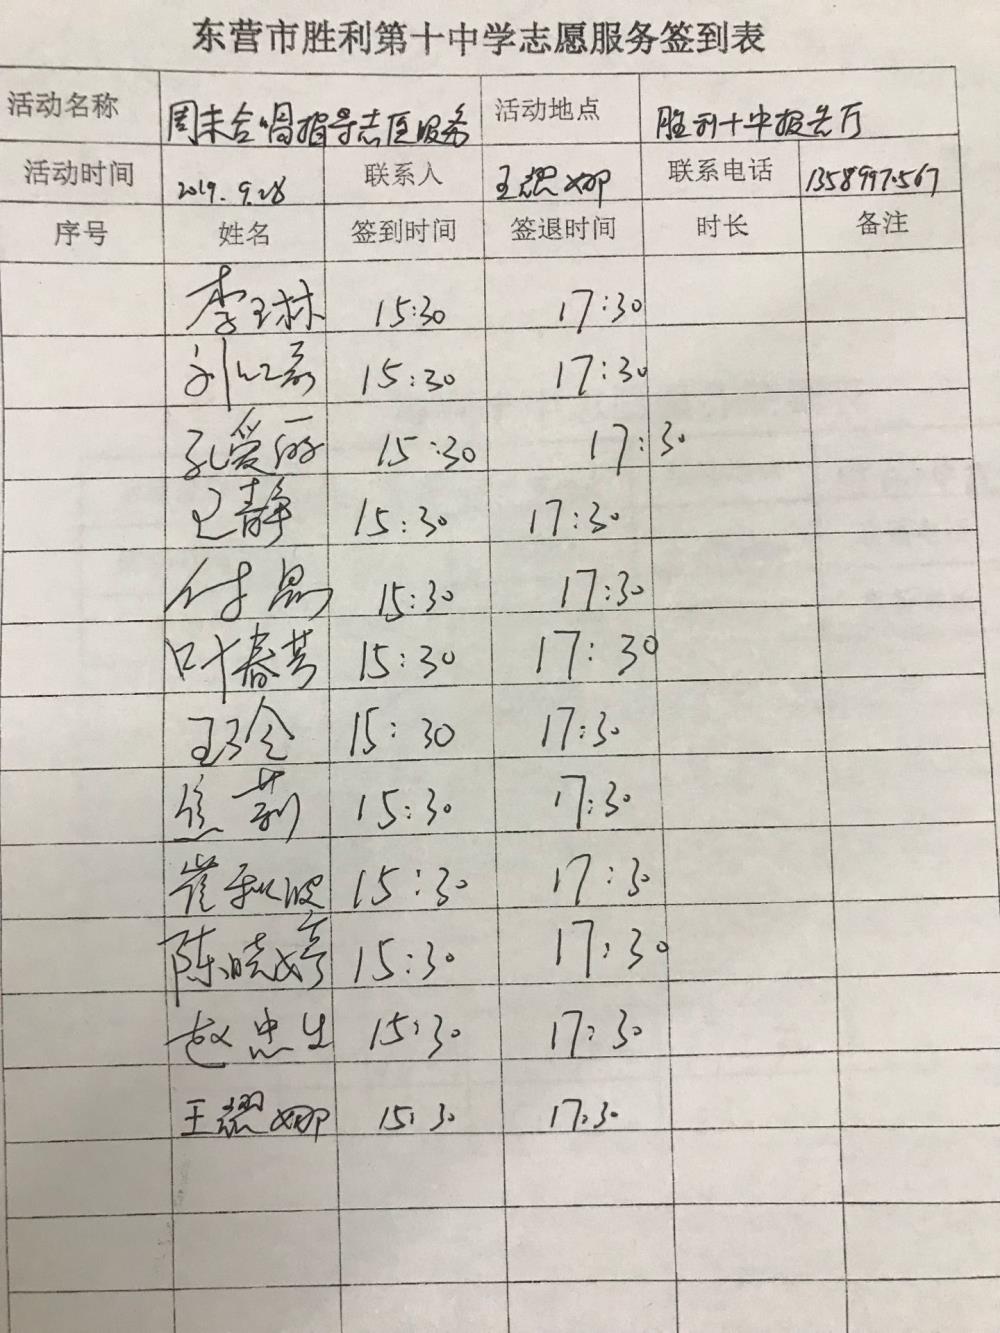 东营市胜利第十中学志愿服务签到表
活动名称 周末合唱指导志愿服务 活动地点 胜利十中报告厅
活动时间 2019.9.28 联系人 王耀娜 联系电话
序号 姓名 签到时间 签退时间 时长 备注
李玉林 15:30 17:30
刘红磊 15:30 17:30
孔爱丽 15:30 17:30
静 15:30 17:30
付昂 15:30 17:30
叶春芳 15:30 17:30
王玲 15:30 17:30
焦莉 15:30 17:30
崔秋波 15:30 17:30
陈晓婷 15:30 17:30
赵忠生 15:30 17:30
王耀娜 15:30 17:30